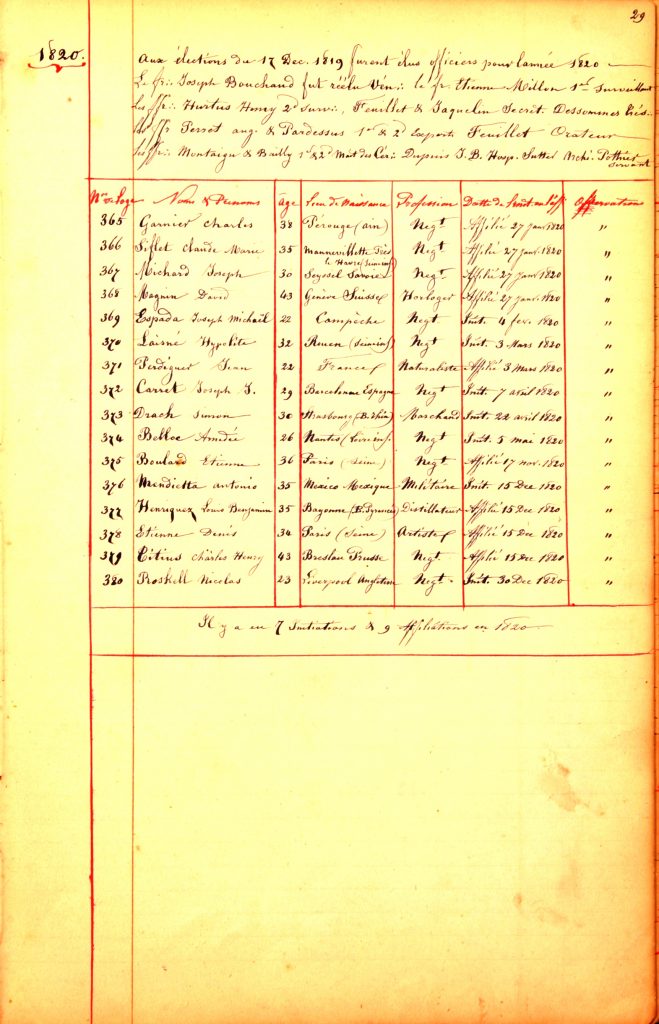 29
1820.
Aux élections du 17 Dec. 1819 furent élus officiers pour l'année 1820
Le fr∴ Joseph Bouchaud fut réélu Vén∴ le fr. Etienne Millon 1er Surveillant
les ffr∴ Hurtus Henry 2d surv∴, Feuillet & Jaquelin Secrét. Dessommes Trés∴
les ffr Perrot aug. & Pardessus 1er & 2d Experts Feuillet Orateur
les ffr∴ Montaigu & Bailly 1er & 2d Mait. des Cér∴ Dupuis J. B. Hosp. Sutter Archi. Pothier
Servant
No de Loge Noms & Prénoms âge Lieu de Naissance Profession Datte de l'Init. ou l'aff Observation
365 Garnier Charles 38 Pérouge (ain) Negt Affilié 27 janv. 1820 "
366 Siflet Claude Marie 35 Mannevillette Près Negt Affilié 27 janv. 1820 "
le Havre
367 Michard Joseph 30 Seyssel Savoie Negt Affilié 27 janv. 1820 "
368 Magnin David 43 Genève Suisse Horloger Affilié 27 janv. 1820 "
369 Espada Joseph Michaël 22 Campêche Negt Init. 4 fevr. 1820 "
370 Laisné Hypolite 32 Rouen Negt Init. 3 Mars 1820 "
371 Perdiguer Jean 22 France Naturaliste Affilié 3 mars 1820 "
372 Carret Joseph J. 29 Barcelonne Espagne Negt Init. 7 avril 1820 "
373 Drach Simon 30 Strasbourg (B. Rhin) Marchand Init. 22 avril 1820 "
374 Belloc Amédée 26 Nantes Negt Init. 5 mai 1820 "
375 Boulard Etienne 36 Paris (Seine) Negt Affilié 17 nov. 1820 "
376 Mendietta Antonio 35 Mexico Mexique Militaire Init. 15 Dec 1820 "
377 Henriquez Louis Benjamin 35 Bayonne (B. Pyrenées) Distillateur Affilié 15 Dec 1820 "
378 Etienne Denis 34 Paris (Seine) Artiste Affilié 15 Dec 1820 "
379 Citius Charles Henry 43 Breslau Prusse Negt Affilié 15 Dec 1820 "
380 Roskell Nicolas 23 Liverpool Negt Init. 30 Dec 1820 "
Il y a eu 7 Initiations & 9 Affiliations en 1820